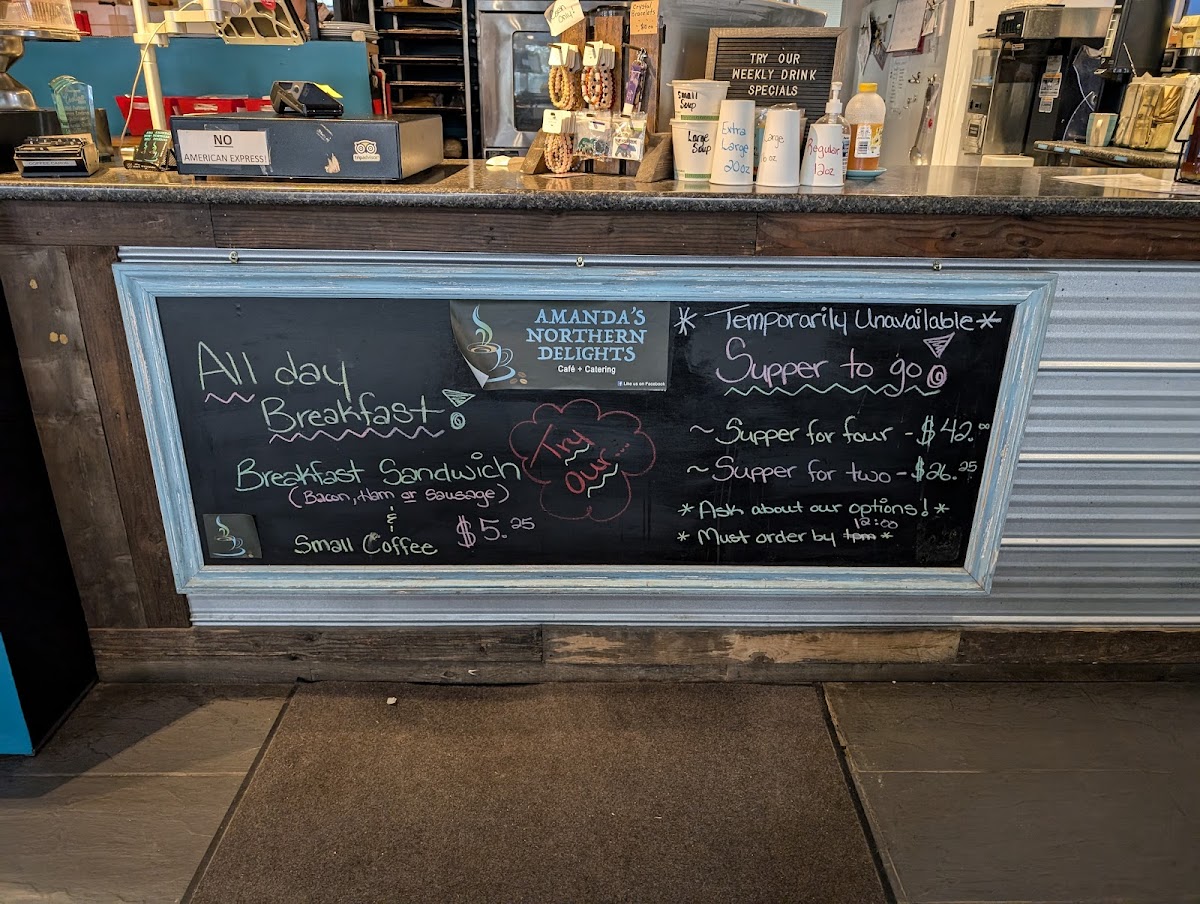 Crystal
Bracelets
TRY OUR
WEEKLY DRINK
SPECIALS
Small
Soup
Large
Soup
Extra
Large
20oz
Large
Regular
12oz
NO
AMERICAN EXPRESS!
tripadvisor
COFFEE CARDS
AMANDA'S
NORTHERN
DELIGHTS
Café + Catering
Like us on Facebook
All day
Breakfast!
Breakfast Sandwich
(Bacon, Ham or Sausage)
&
Small Coffee
$5.25
Try
our...
* Temporarily Unavailable *
Supper to go!
~ Supper for four - $42.00
~ Supper for two - $26.25
* Ask about our options! *
12:00
* Must order by 1pm *